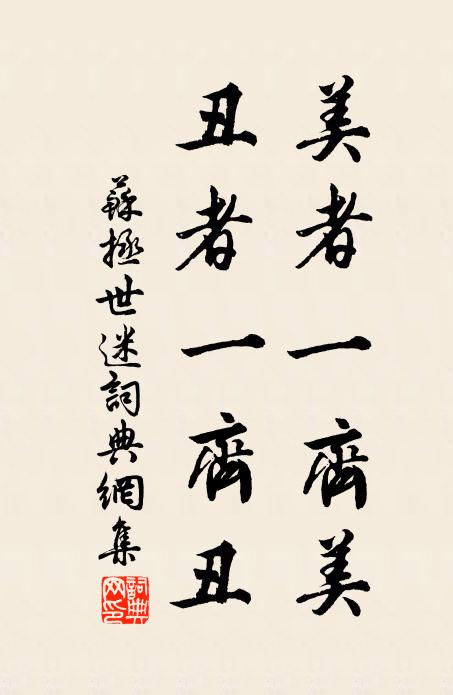 美者一齊美
丑者一齊丑
蘇拯世迷詞典網集
詞典网印